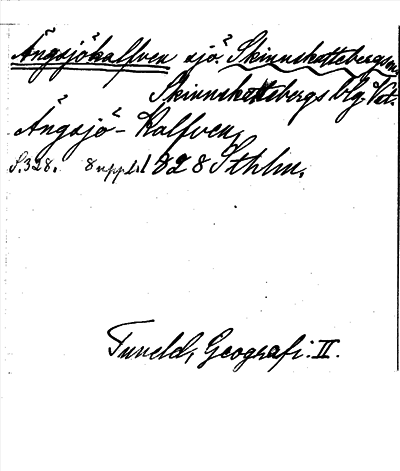 Ängsjökalfven sjö. Skinnskattebergs sn,
Skinnskattebergs blg. Vstm.
Ängsjö-Kalfven,
S.328. 8 uppl. 1828 Sthlm.
Tuneld, Geografi. II.